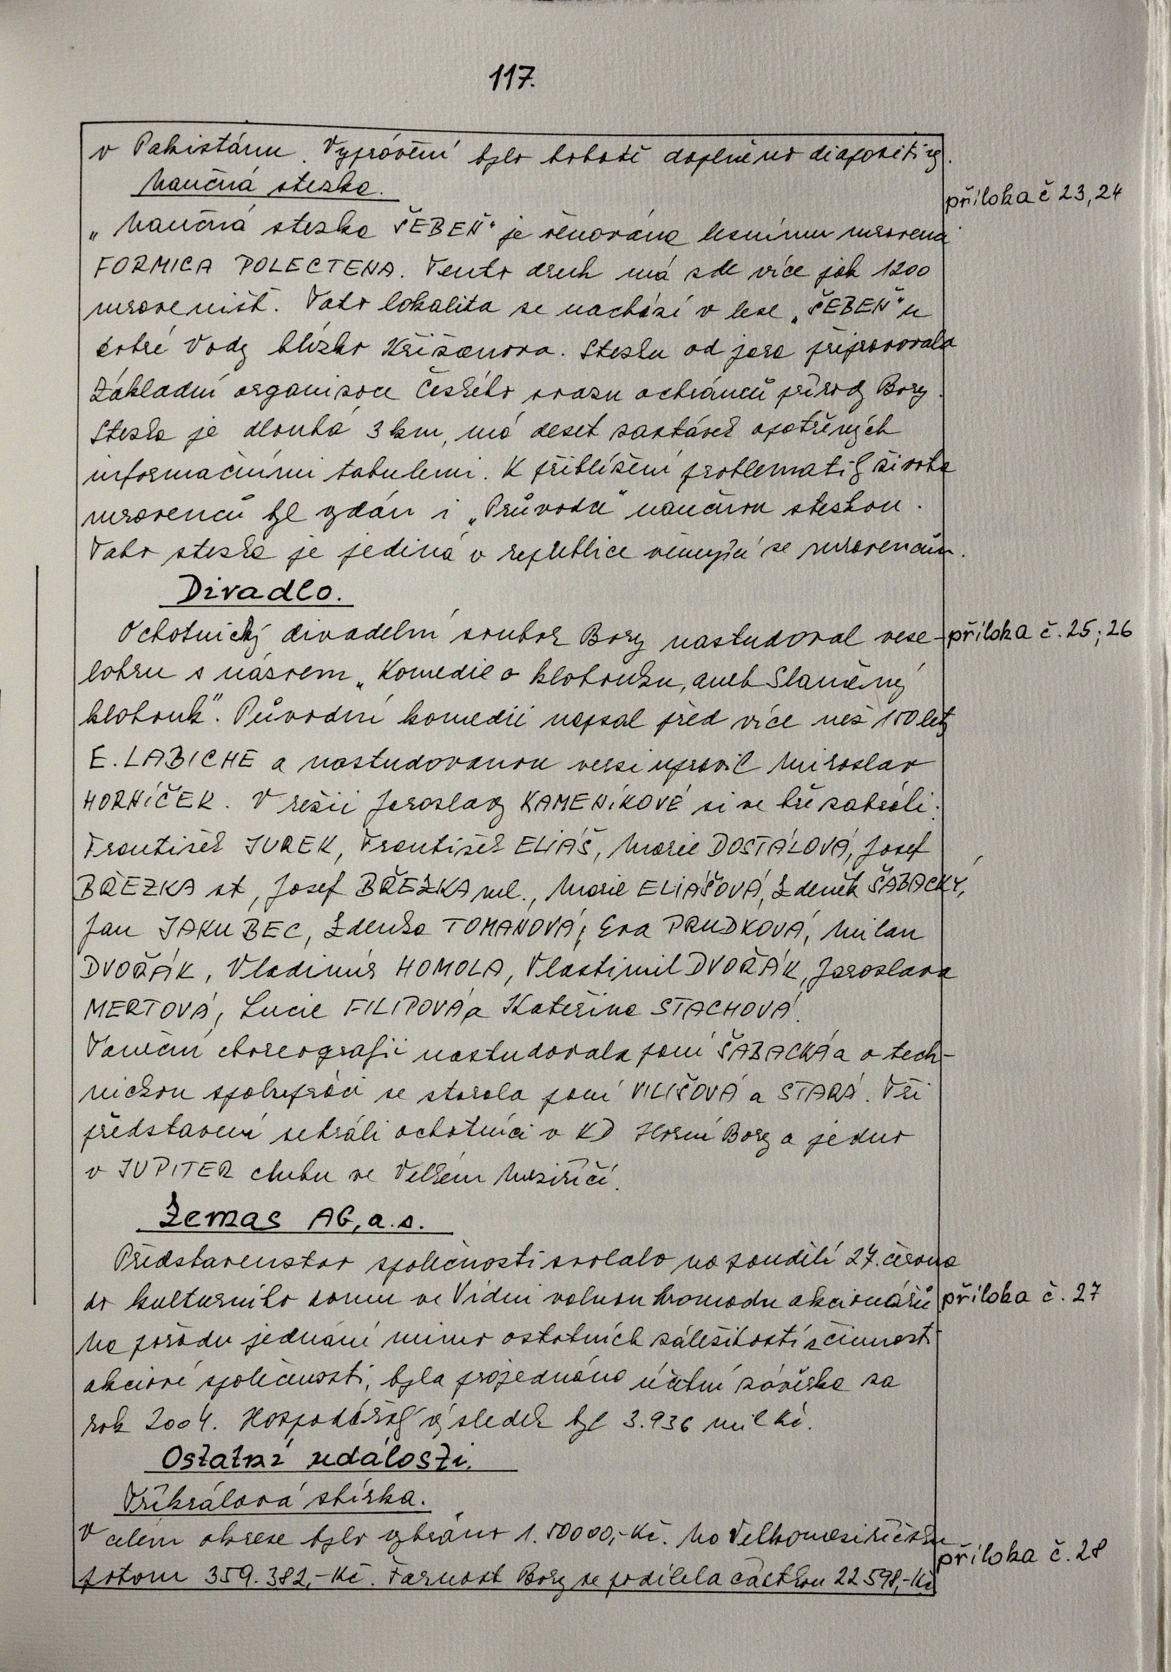 117.
v Pakistánu. Vyprávění bylo bohatě doplněno diapozitivy.
Naučná stezka.
příloha č 23,24
„Naučná stezka ŠEBEŇ" je věnována lesnímu mravenci
FORMICA POLECTENA. Tento druh má zde více jak 1200
mravenišť. Tato lokalita se nachází v lese „ŠEBEŇ" u
Dobré Vody blízko Křižanova. Stezku od jara připravovala
Základní organizace Českého svazu ochránců přírody Bory.
Stezka je dlouhá 3 km, má deset zastávek opatřených
informačními tabulemi. K přiblížení problematiky života
mravenců byl vydán i „Průvodce" naučnou stezkou.
Tato stezka je jediná v republice věnující se mravencům.
Divadlo.
Ochotnický divadelní soubor Bory nastudoval vese-
příloha č. 25, 26
lohru s názvem „Komedie o klobouku, aneb Slaměný
klobouk". Původní komedii napsal před více než 150 lety
E. LABICHE a nastudovanou verzi upravil Miroslav
HORNÍČEK. V režii Jaroslavy KAMENÍKOVÉ si ve hře zahráli:
František JUREK, František ELIÁŠ, Marie DOSTÁLOVÁ, Josef
BŘEZKA st, Josef BŘEZKA ml., Marie ELIÁŠOVÁ, Zdeněk ŠABACKÝ,
Jan JAKUBEC, Zdenka TOMANOVÁ, Eva PRUDKOVÁ, Milan
DVOŘÁK, Vladimír HOMOLA, Vlastimil DVOŘÁK, Jaroslava
MERTOVÁ, Lucie FILIPOVÁ a Kateřina STACHOVÁ.
Taneční choreografii nastudovala paní ŠABACKÁ a o tech-
nickou spolupráci se starala paní VILIŠOVÁ a STARÁ. Tři
představení sehráli ochotníci v KD Horní Bory a jedno
v JUPITER clubu ve Velkém Meziříčí.
Zemas AG, a.s.
Představenstvo společnosti svolalo na pondělí 27. června
do kulturního domu ve Vídni valnou hromadu akcionářů
příloha č. 27
Na pořadu jednání mimo ostatních záležitostí z činnosti
akciové společnosti, byla projednána účetní závěrka za
rok 2004. Hospodářský výsledek byl 3.936 mil Kč.
Ostatní události.
Tříkrálová sbírka.
V celém okrese bylo vybráno 1.50000,-Kč. Na Velkomeziříčsku
příloha č. 28
potom 359.382,-Kč. Farnost Bory se podílela částkou 22 598,-Kč